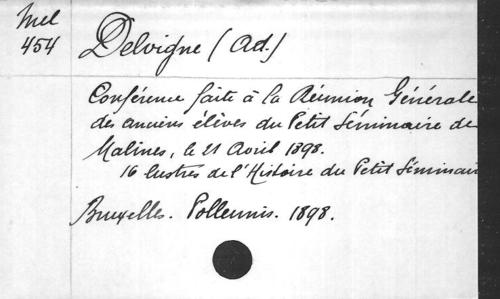 Mel
454
Delvigne (Ad.)
Conférence faite à la Réunion Générale
des anciens élèves du Petit Séminaire de
Malines, le 21 Avril 1898.
16 lustres de l'Histoire du Petit Séminair
Bruxelles. Polleunis. 1898.